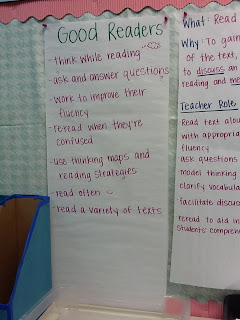 Good Readers
- think while reading
- ask and answer questions
- work to improve their
fluency
- reread when they're
confused
- use thinking maps and
reading strategies
- read often
- read a variety of texts
What: Read
Why: To gain
of the text,
to discuss an
reading and me
Teacher Role
Read text alou
with appropria
fluency
ask questions
model thinking
clarify vocabula
facilitate discus
reread to aid in
students' comprehe